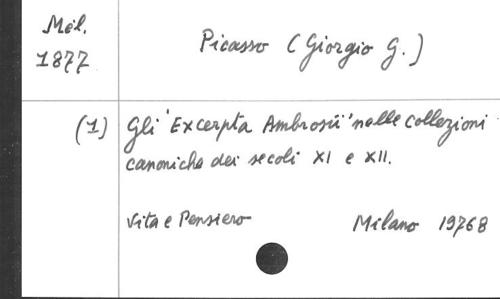 Mél.
1877
Picasso (Giorgio G.)
(1) Gli 'Excerpta Ambrosii' nelle collezioni
canoniche dei secoli XI e XII.
Vita e Pensiero Milano 19768